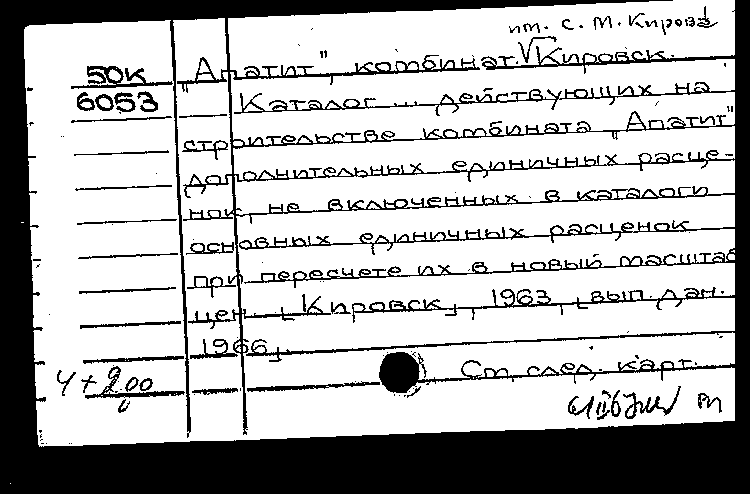 им. С. М. Кирова
50к "Апатит", комбинат. √Кировск.
6053 Каталог ... действующих на
строительстве комбината "Апатит"
дополнительных единичных расце-
нок, не включенных в каталоги
основных единичных расценок
при пересчете их в новый масштаб
цен. [Кировск], 1963, [вып. дан.
1966].
См. след. карт.
4+200